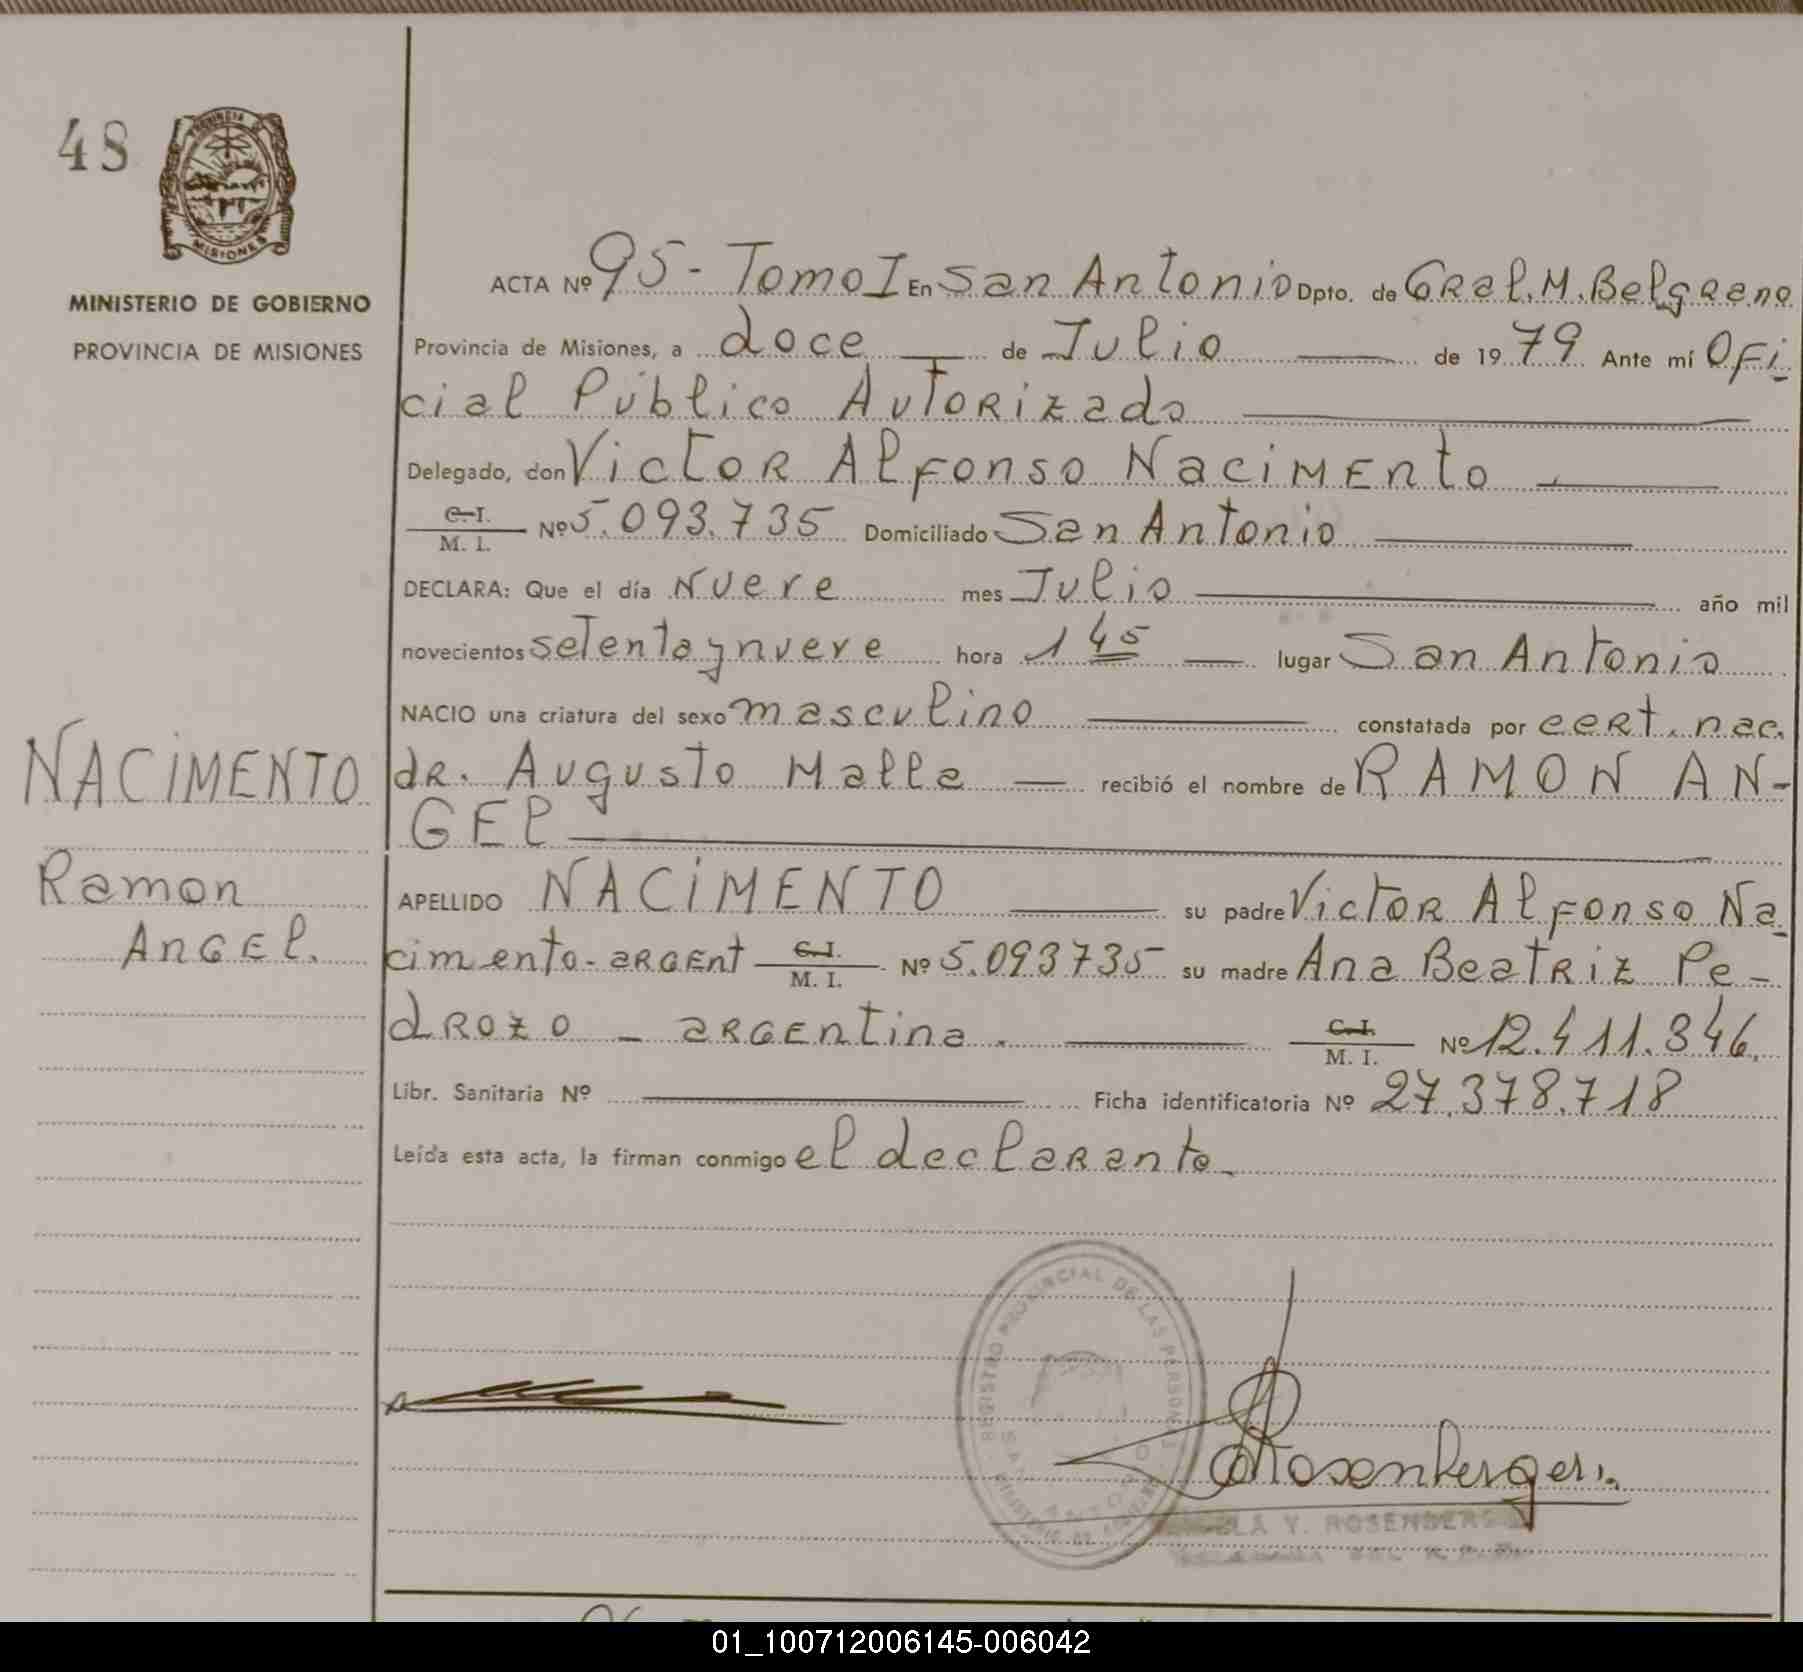 48
PROVINCIA DE
MISIONES
MINISTERIO DE GOBIERNO
PROVINCIA DE MISIONES
NACIMENTO
Ramon
ANGEL.
ACTA Nº 95 - Tomo I En San Antonio Dpto. de GRal. M. Belgrano
Provincia de Misiones, a doce — de Julio — de 1979 Ante mí Ofi-
cial Público Autorizado —
Delegado, don Victor Alfonso Nacimento —
C. I.
M. I. Nº 5.093.735 Domiciliado San Antonio —
DECLARA: Que el día Nueve mes Julio — año mil
novecientos setenta y nueve hora 1 45 — lugar San Antonio
NACIO una criatura del sexo masculino — constatada por cert. nac.
dr. Augusto Malla — recibió el nombre de RAMON AN-
GEL —
APELLIDO NACIMENTO — su padre Victor Alfonso Na-
cimento - argent C. I. M. I. Nº 5.093735 su madre Ana Beatriz Pe-
drozo - argentina. — C. I. M. I. Nº 12.411.346.
Libr. Sanitaria Nº — Ficha identificatoria Nº 27.378.718
Leída esta acta, la firman conmigo el declarante.
REGISTRO PROVINCIAL DE LAS PERSONAS
SAN ANTONIO
Rosenberger.
Y. ROSENBERGER
01_100712006145-006042